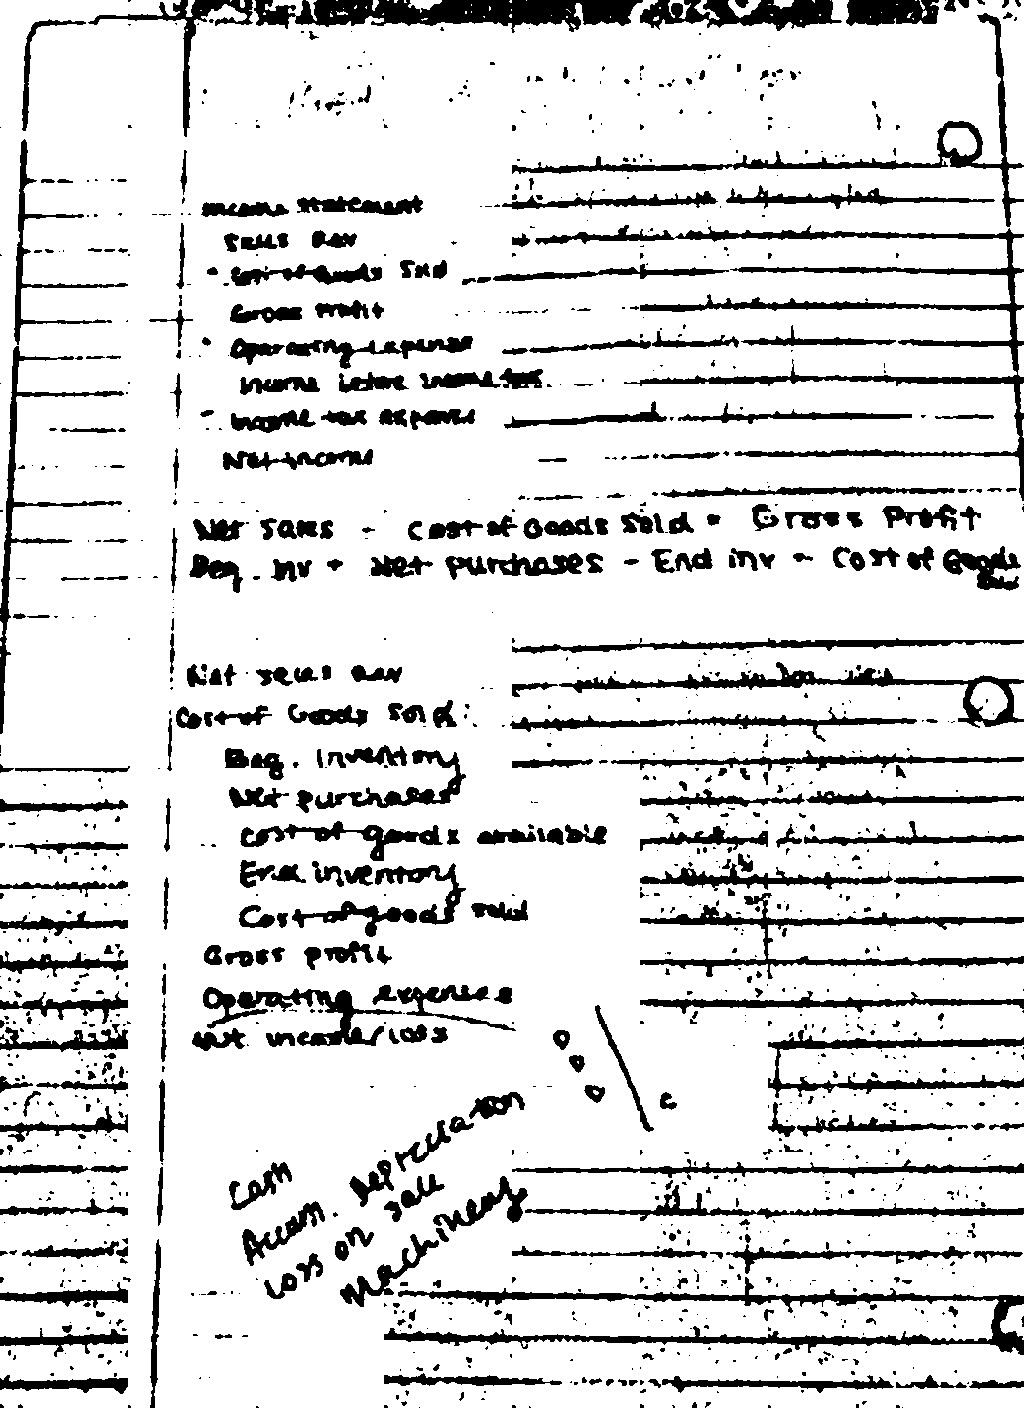 Income statement
Sales Rev
- Cost of Goods Sold
Gross Profit
- Operating expense
Income before income tax
- Income tax expense
Net income
Net sales - Cost of Goods Sold = Gross Profit
Beg. inv + Net purchases - End inv = Cost of Goods Sold
Net sales Rev
Cost of Goods Sold:
Beg. inventory
Net purchases
Cost of goods available
End. inventory
Cost of goods sold
Gross profit
Operating expenses
Net income/loss
Cash
Accum. Depreciation
Loss on sale
Machinery